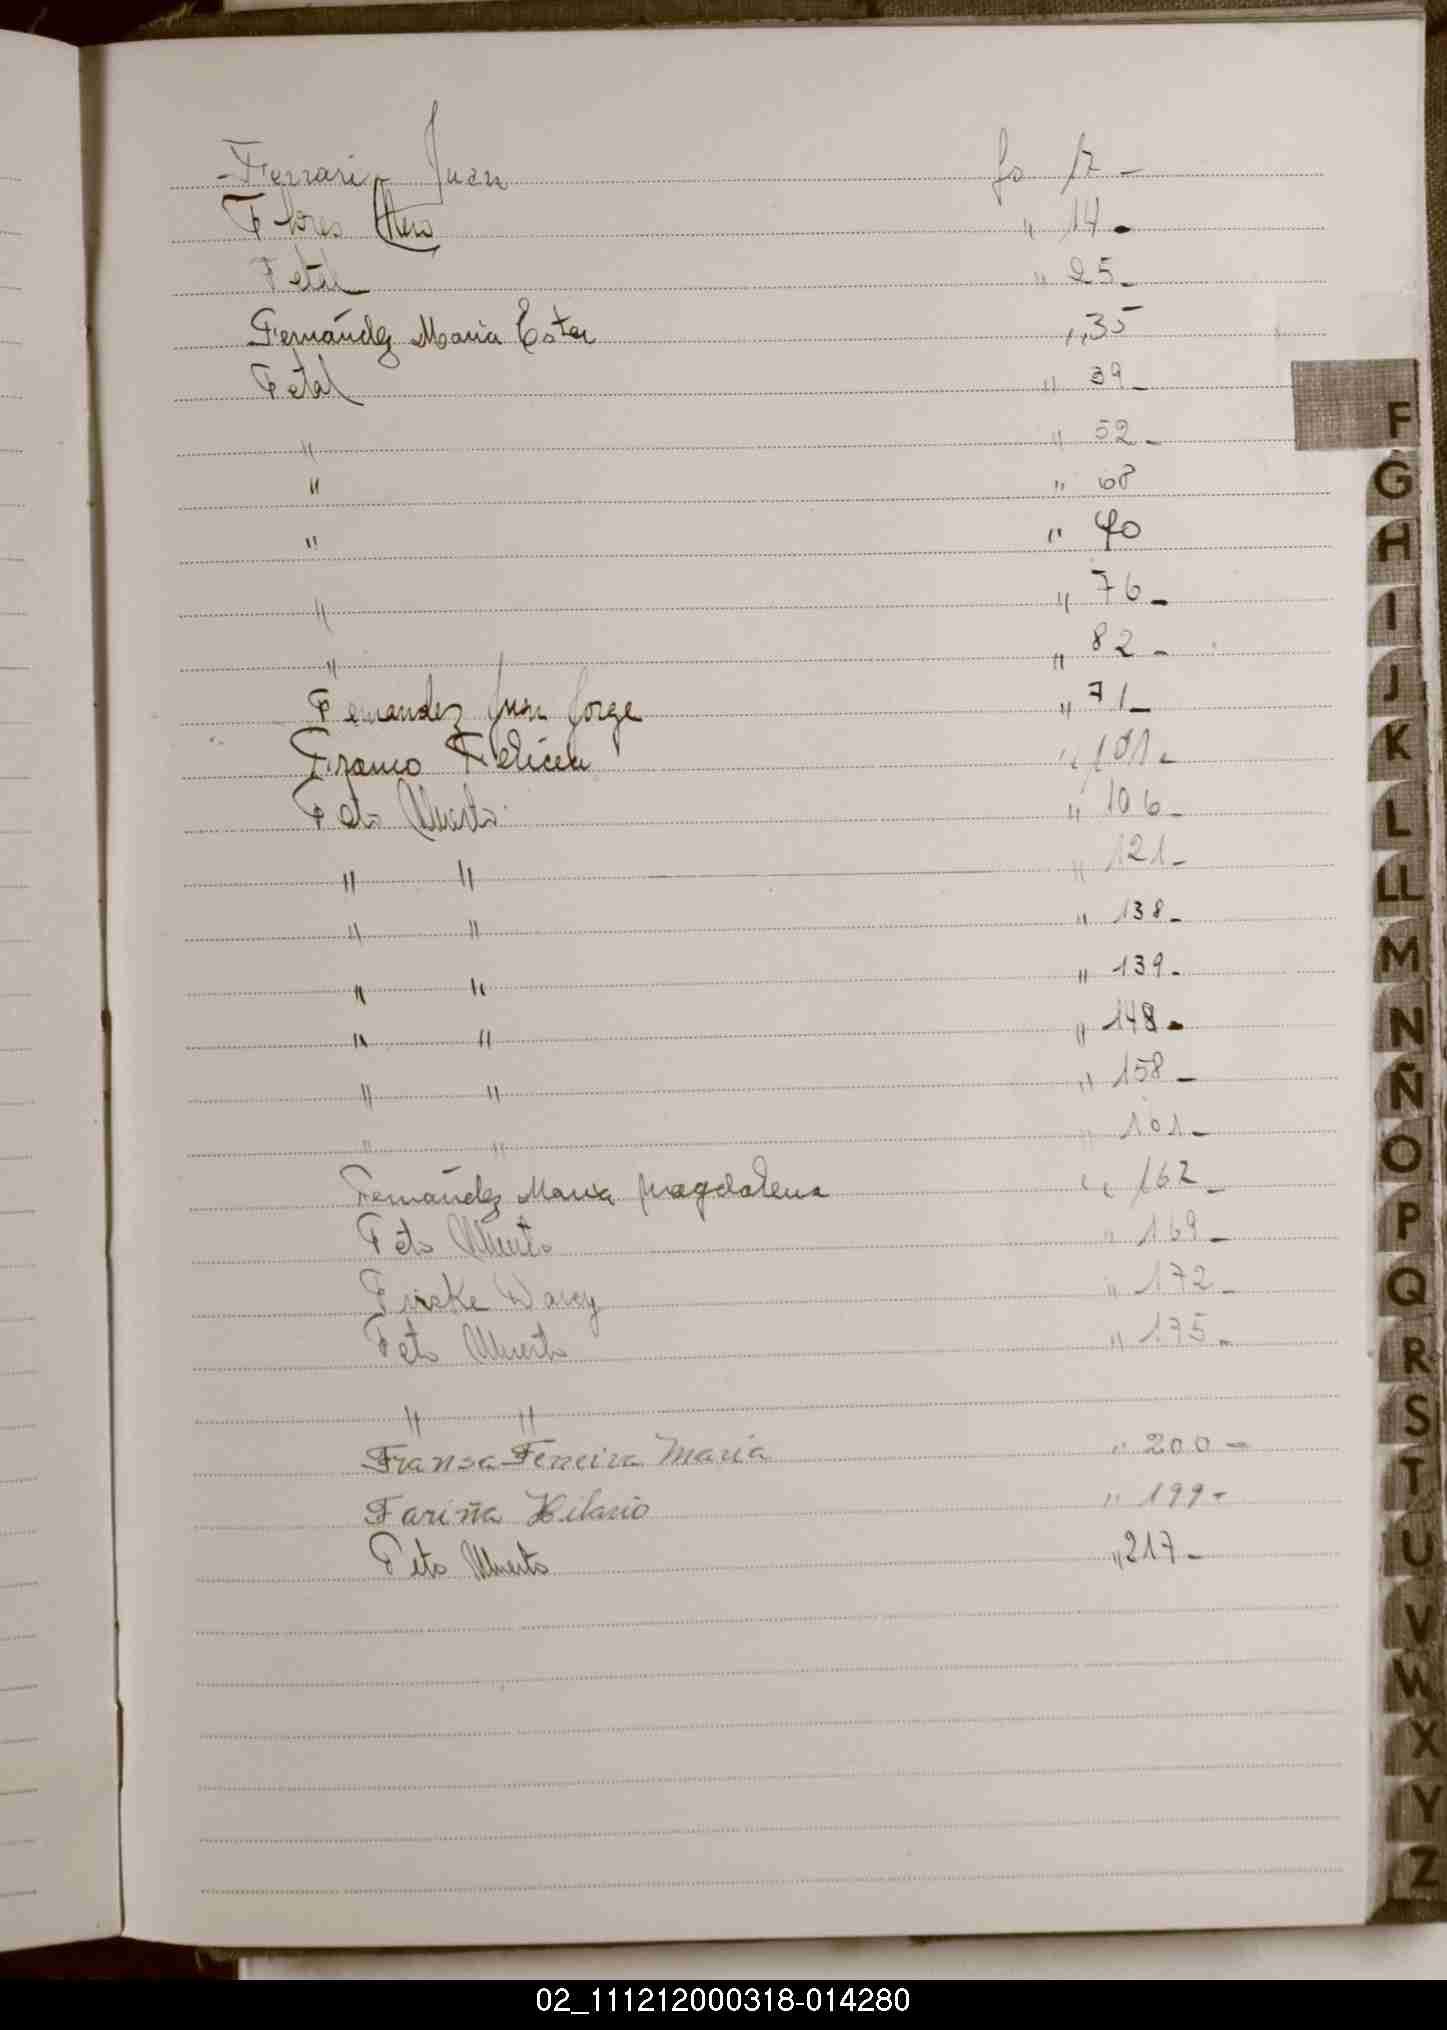 Ferrari Juan fo 17 -
Flores " 14 -
Fetal " 25 -
Fernández Maria Ester " 35
Fetal " 39 -
" " 52 -
" " 68
" " 70
" " 76 -
" " 82 -
Fernandez Juan Jorge " 71 -
Franco Felicia " 101 -
Feto Muerto " 106 -
" " " 121 -
" " " 138 -
" " " 139 -
" " " 148 -
" " " 158 -
" " " 161 -
Fernández Maria Magdalena " 162 -
Feto Muerto " 169 -
Darcy " 172 -
Feto Muerto " 175 -
" "
Fransa Ferreira Maria " 200 -
Fariña Hilario " 199 -
Feto Muerto " 217 -
F
G
H
I
J
K
L
LL
M
N
Ñ
O
P
Q
R
S
T
U
V
W
X
Y
Z
02_111212000318-014280